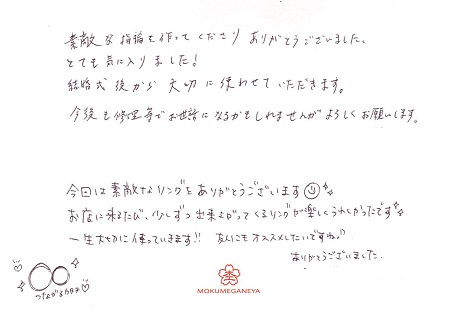 素敵な指輪を作ってくださり ありがとうございました。
とても気に入りました!
結婚式後から 大切に使わせていただきます。
今後も修理等でお世話になるかもしれませんがよろしくお願いします。
今回は素敵なリングをありがとうございます
お店に来るたび、少しずつ出来上がってくるリングが楽しくうれしかったです
一生大切に使っていきます!! 友人にもオススメしたいですね!!
ありがとうございました
つながるカタチ
MOKUMEGANEYA